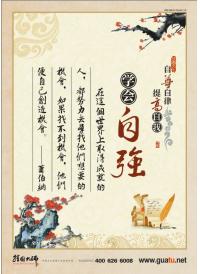 自尊自律
提高自我
学会
自強
在這個世界上取得成就的
人，都努力去尋找他們想要的
機會，如果找不到機會，他們
便自己創造機會。
蕭伯納
400 626 6008
www.guatu.net